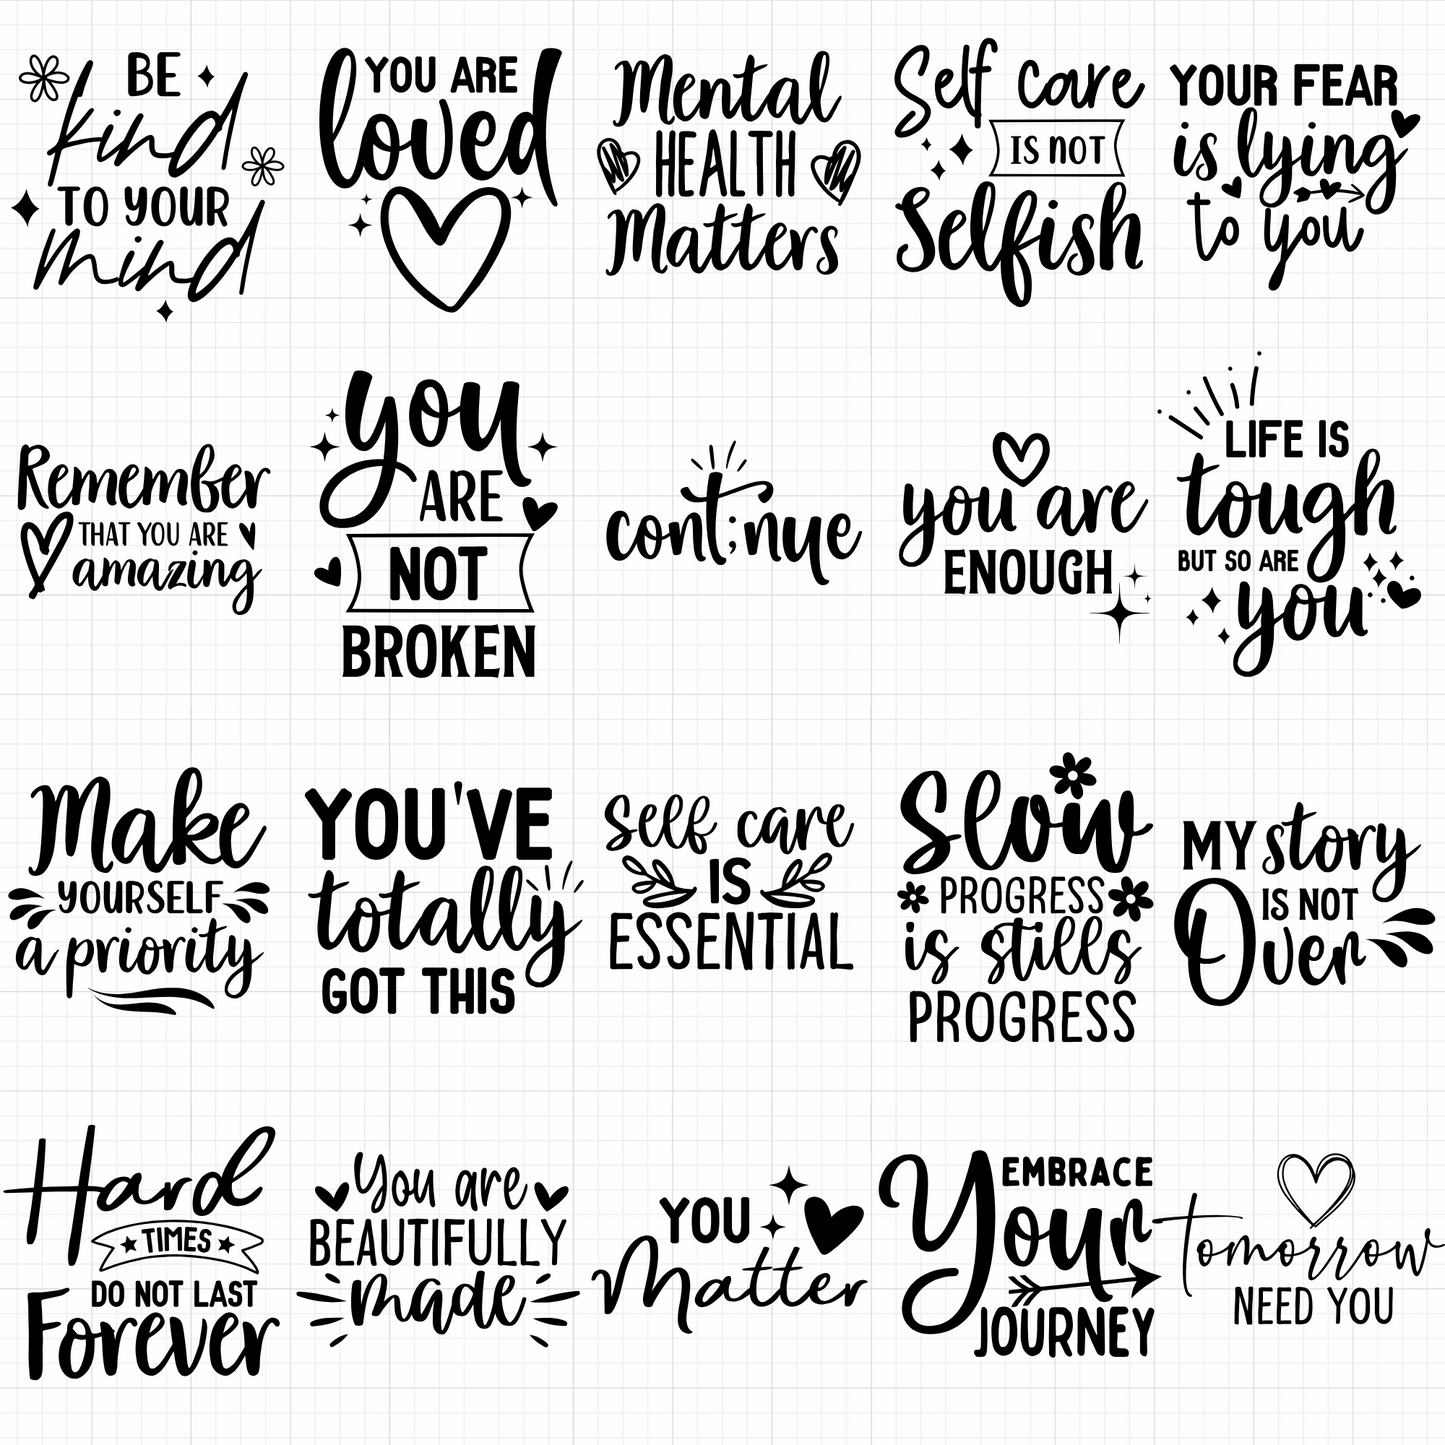 BE
kind
TO YOUR
mind
YOU ARE
loved
Mental
HEALTH
Matters
Self care
IS NOT
Selfish
YOUR FEAR
is lying
to you
Remember
THAT YOU ARE
amazing
you
ARE
NOT
BROKEN
cont;nue
you are
ENOUGH
LIFE IS
tough
BUT SO ARE
you
Make
YOURSELF
a priority
YOU'VE
totally
GOT THIS
Self care
IS
ESSENTIAL
Slow
PROGRESS
is stills
PROGRESS
MY story
IS NOT
Over
Hard
TIMES
DO NOT LAST
Forever
You are
BEAUTIFULLY
made
YOU
Matter
EMBRACE
Your
JOURNEY
Tomorrow
NEED YOU